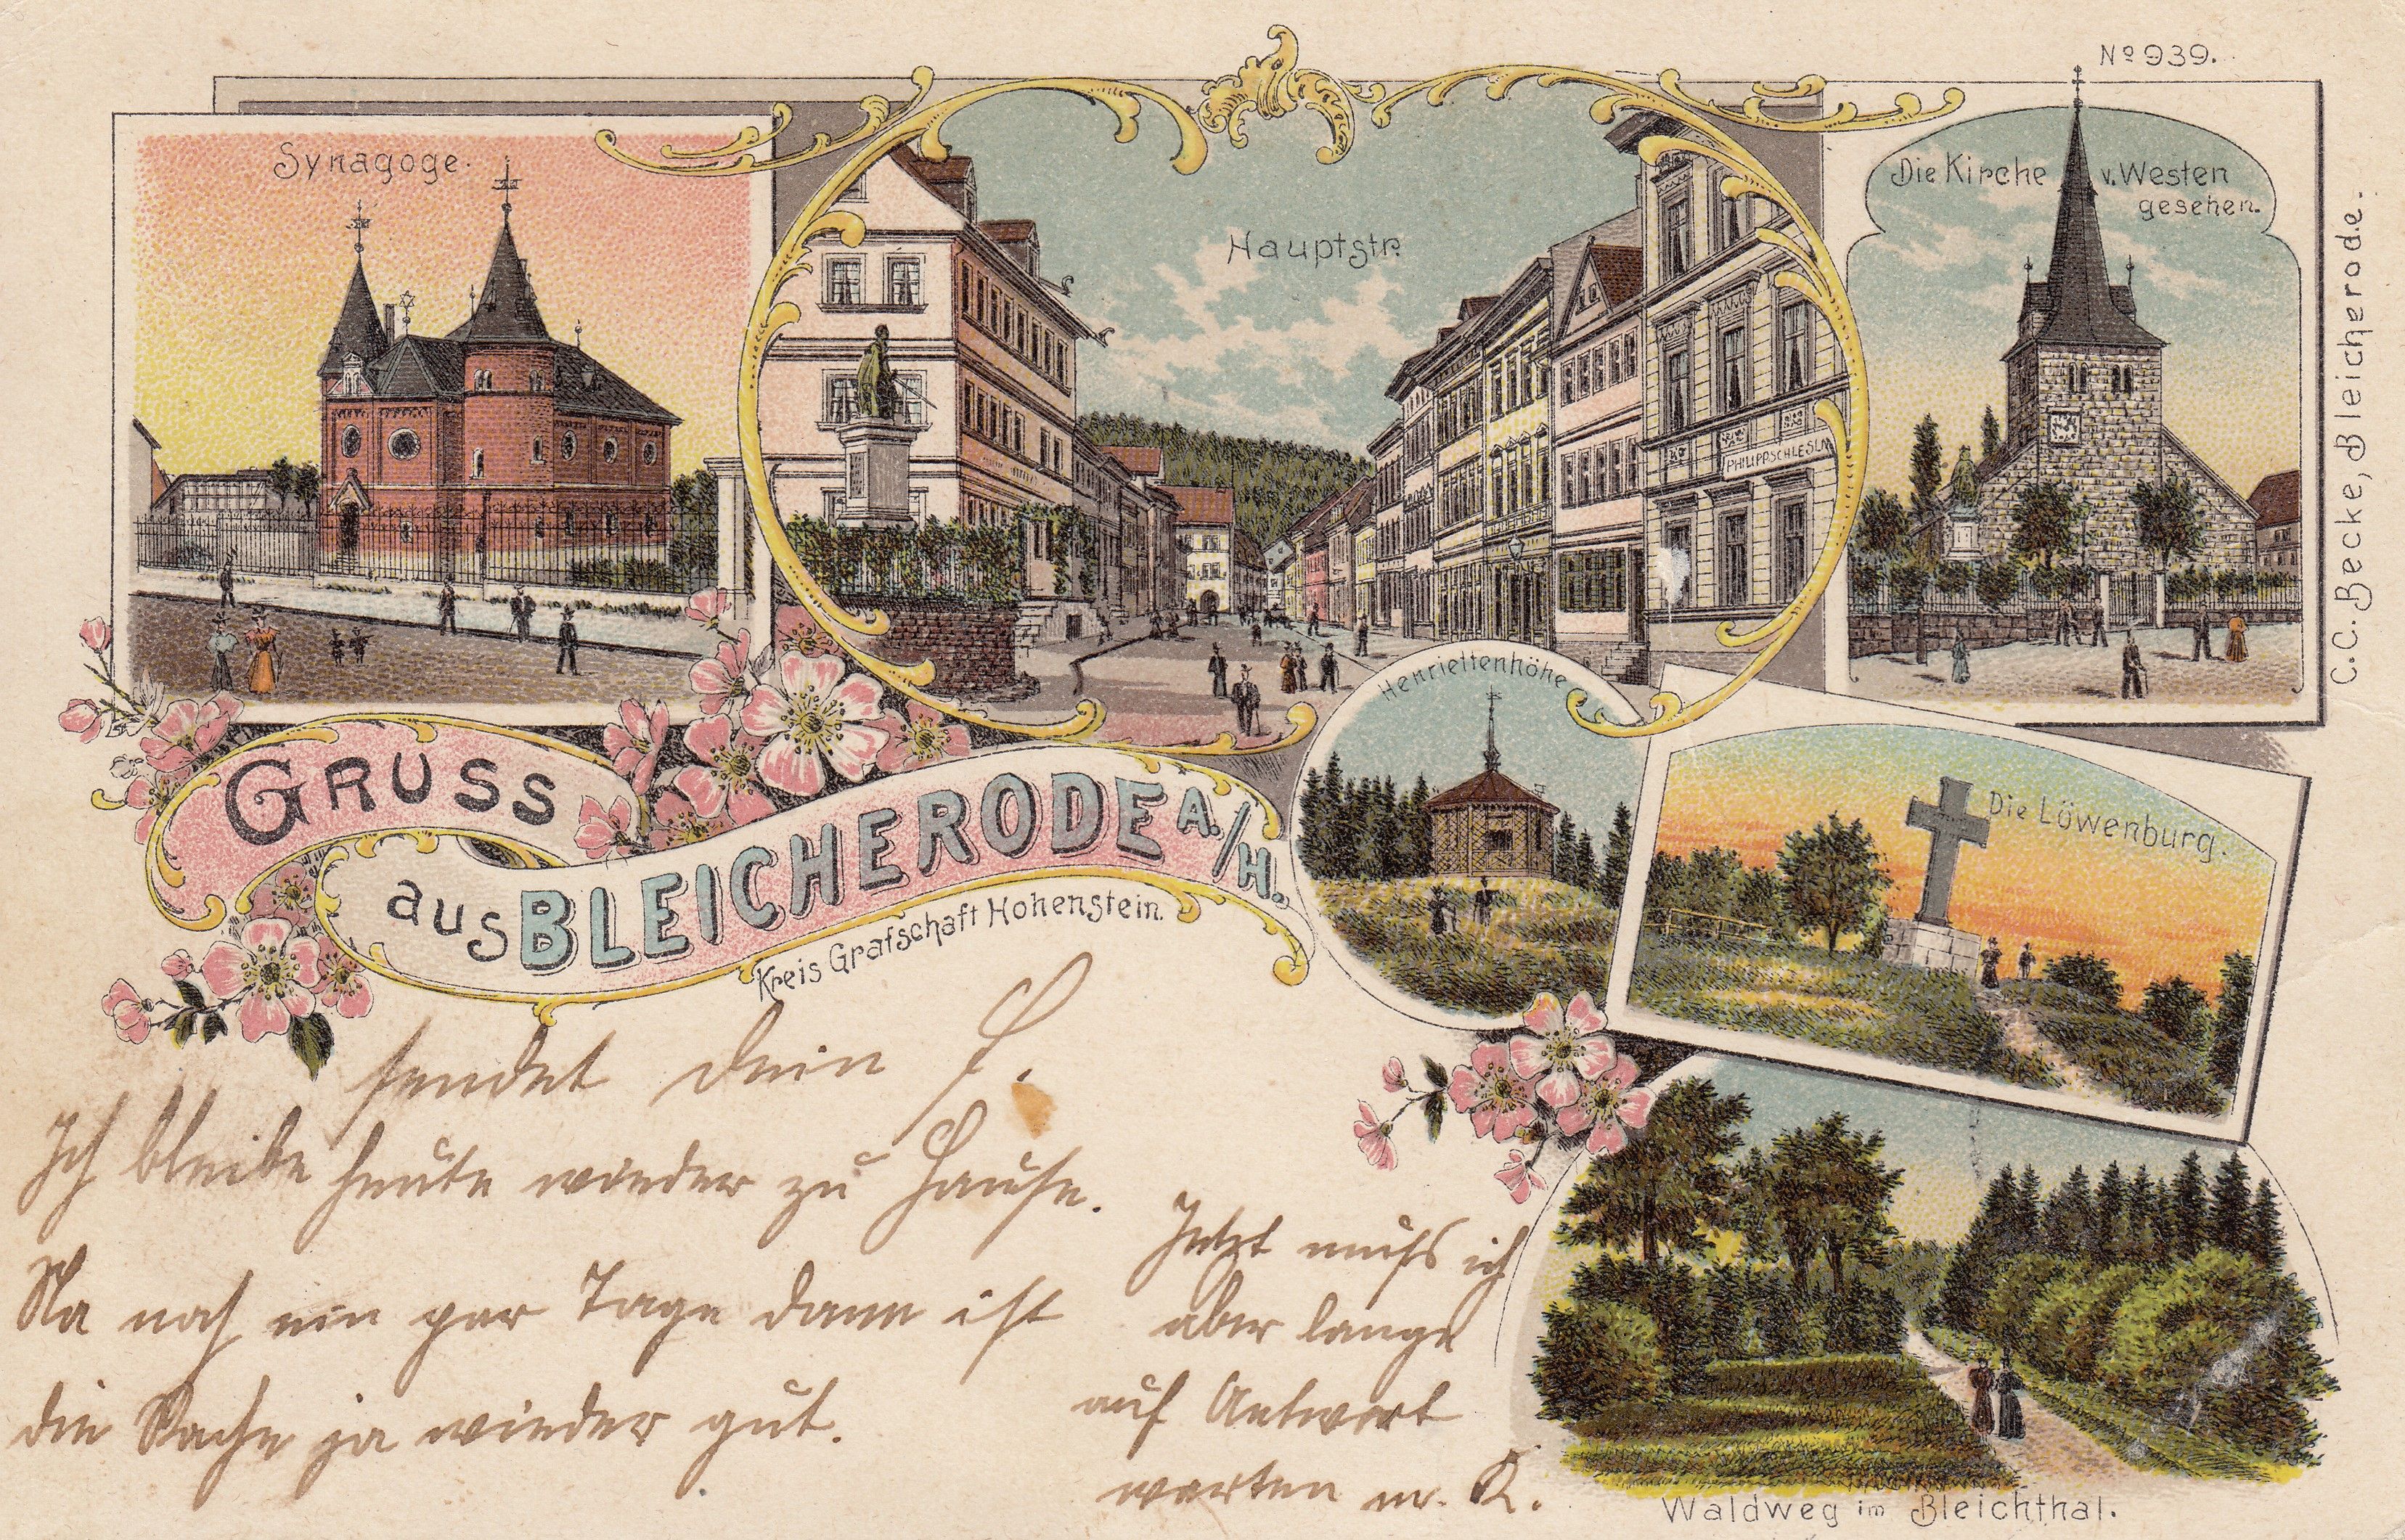 Nº 939.
Synagoge.
Hauptstr.
PHILIPP SCHLESIN
Die Kirche v. Westen
gesehen.
C. C. Becke, Bleicherode.
Henriettenhöhe
Die Löwenburg.
GRUSS
aus BLEICHERODE A./H.
Kreis Grafschaft Hohenstein.
sendet dein
Ich bleibe heute wieder zu Hause.
Na noch ein par Tage dann ist
die Sache ja wieder gut.
Jetzt muß ich
aber lange
auf Antwort
warten m. K.
Waldweg im Bleichthal.